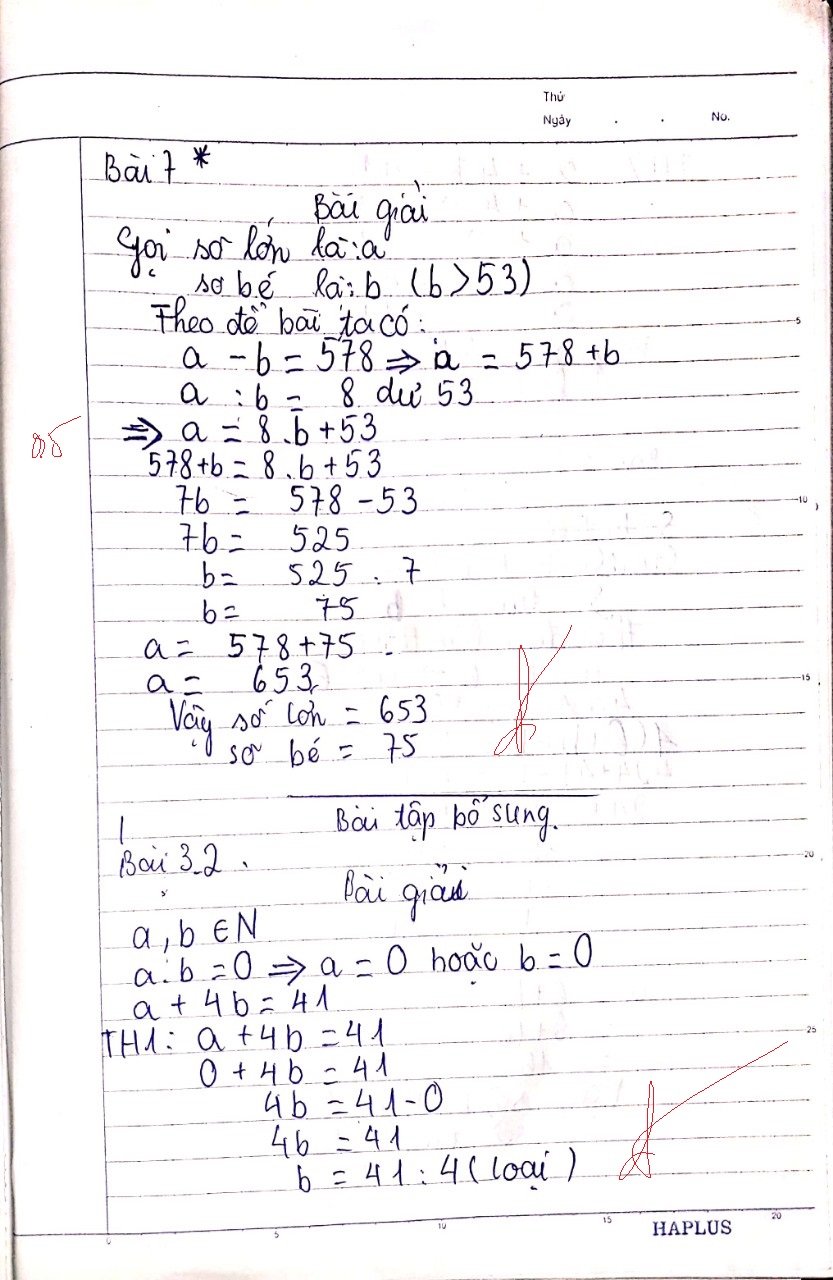 Thứ
Ngày . . No.
Bài 7 *
Bài giải
Gọi số lớn là: a
số bé là: b (b > 53)
Theo đề bài ta có:
a - b = 578 => a = 578 + b
a : b = 8 dư 53
=> a = 8.b + 53
0,5
578 + b = 8.b + 53
7b = 578 - 53
7b = 525
b = 525 : 7
b = 75
a = 578 + 75
a = 653
Vậy số lớn = 653
số bé = 75
Bài tập bổ sung.
Bài 3.2.
Bài giải
a, b ∈ N
a.b = 0 => a = 0 hoặc b = 0
a + 4b = 41
TH1: a + 4b = 41
0 + 4b = 41
4b = 41 - 0
4b = 41
b = 41 : 4 (loại)
5
10
15
20
25
0 5 10 15 20
HAPLUS